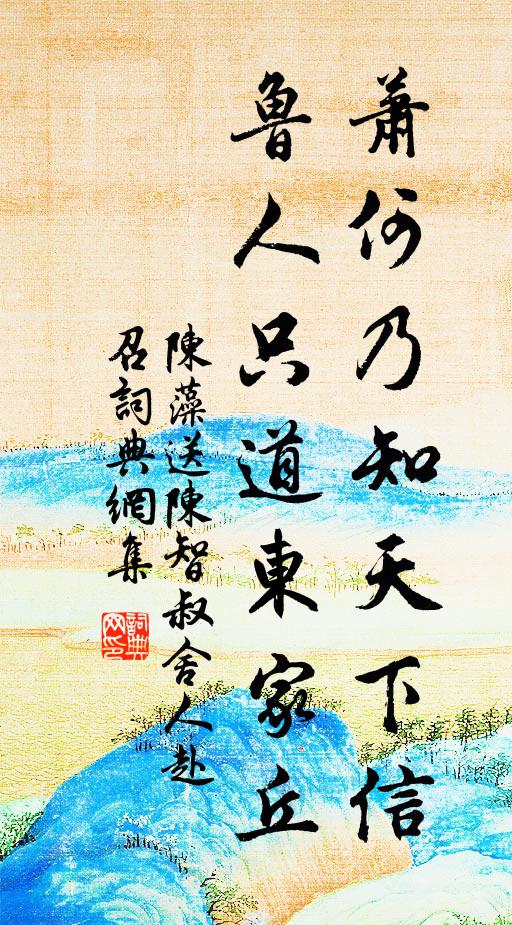 蕭何乃知天下信
魯人只道東家丘
陳藻送陳智叔舍人赴
召詞典網集
詞典
网印